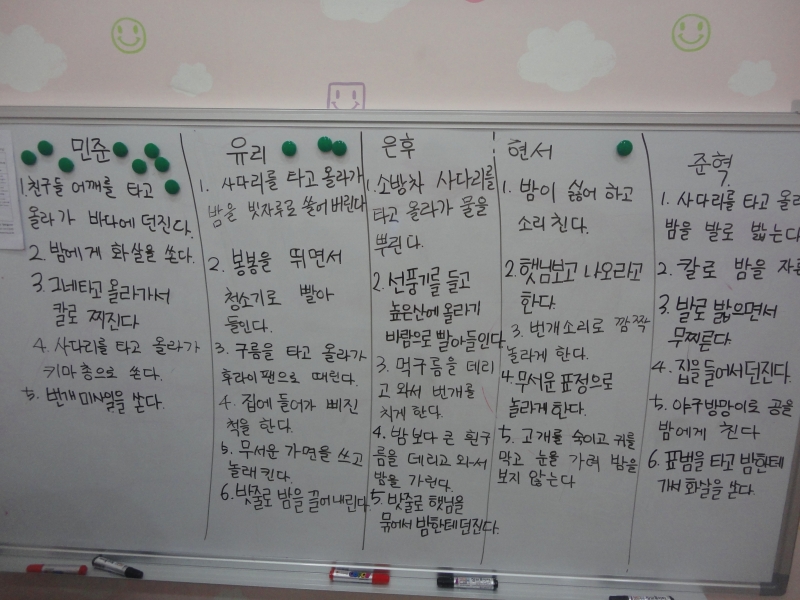 민준
1. 친구들 어깨를 타고
올라가 바다에 던진다.
2. 밤에게 화살을 쏜다.
3. 그네타고 올라가서
칼로 찌진다
4. 사다리를 타고 올라가
키마총으로 쏜다.
5. 번개미사일을 쏜다.
유리
1. 사다리를 타고 올라가
밤을 빗자루로 쓸어버린다
2. 봉봉을 뛰면서
청소기로 빨아
들인다.
3. 구름을 타고 올라가
후라이팬으로 때린다.
4. 집에 들어가 삐진
척을 한다.
5. 무서운 가면을 쓰고
놀래킨다.
6. 밧줄로 밤을 끌어내린다.
은후
1. 소방차 사다리를
타고 올라가 물을
뿌린다.
2. 선풍기를 들고
높은산에 올라가
바람으로 빨아들인다.
3. 먹구름을 데리
고 와서 번개를
치게 한다.
4. 밤보다 큰 흰구
름을 데리고 와서
밤을 가린다.
5. 밧줄로 햇님을
묶어서 밤한테 던진다.
현서
1. 밤이 싫어 하고
소리친다.
2. 햇님보고 나오라고
한다.
3. 번개소리로 깜짝
놀라게 한다.
4. 무서운 표정으로
놀라게 한다.
5. 고개를 숙이고 귀를
막고 눈을 가려 밤을
보지 않는다
준혁
1. 사다리를 타고 올라
밤을 발로 밟는다
2. 칼로 밤을 자른
3. 발로 밟으면서
무찌른다.
4. 집을 들어서 던진다.
5. 야구방망이로 공을
밤에게 친다
6. 표범을 타고 밤한테
가서 화살을 쏜다.